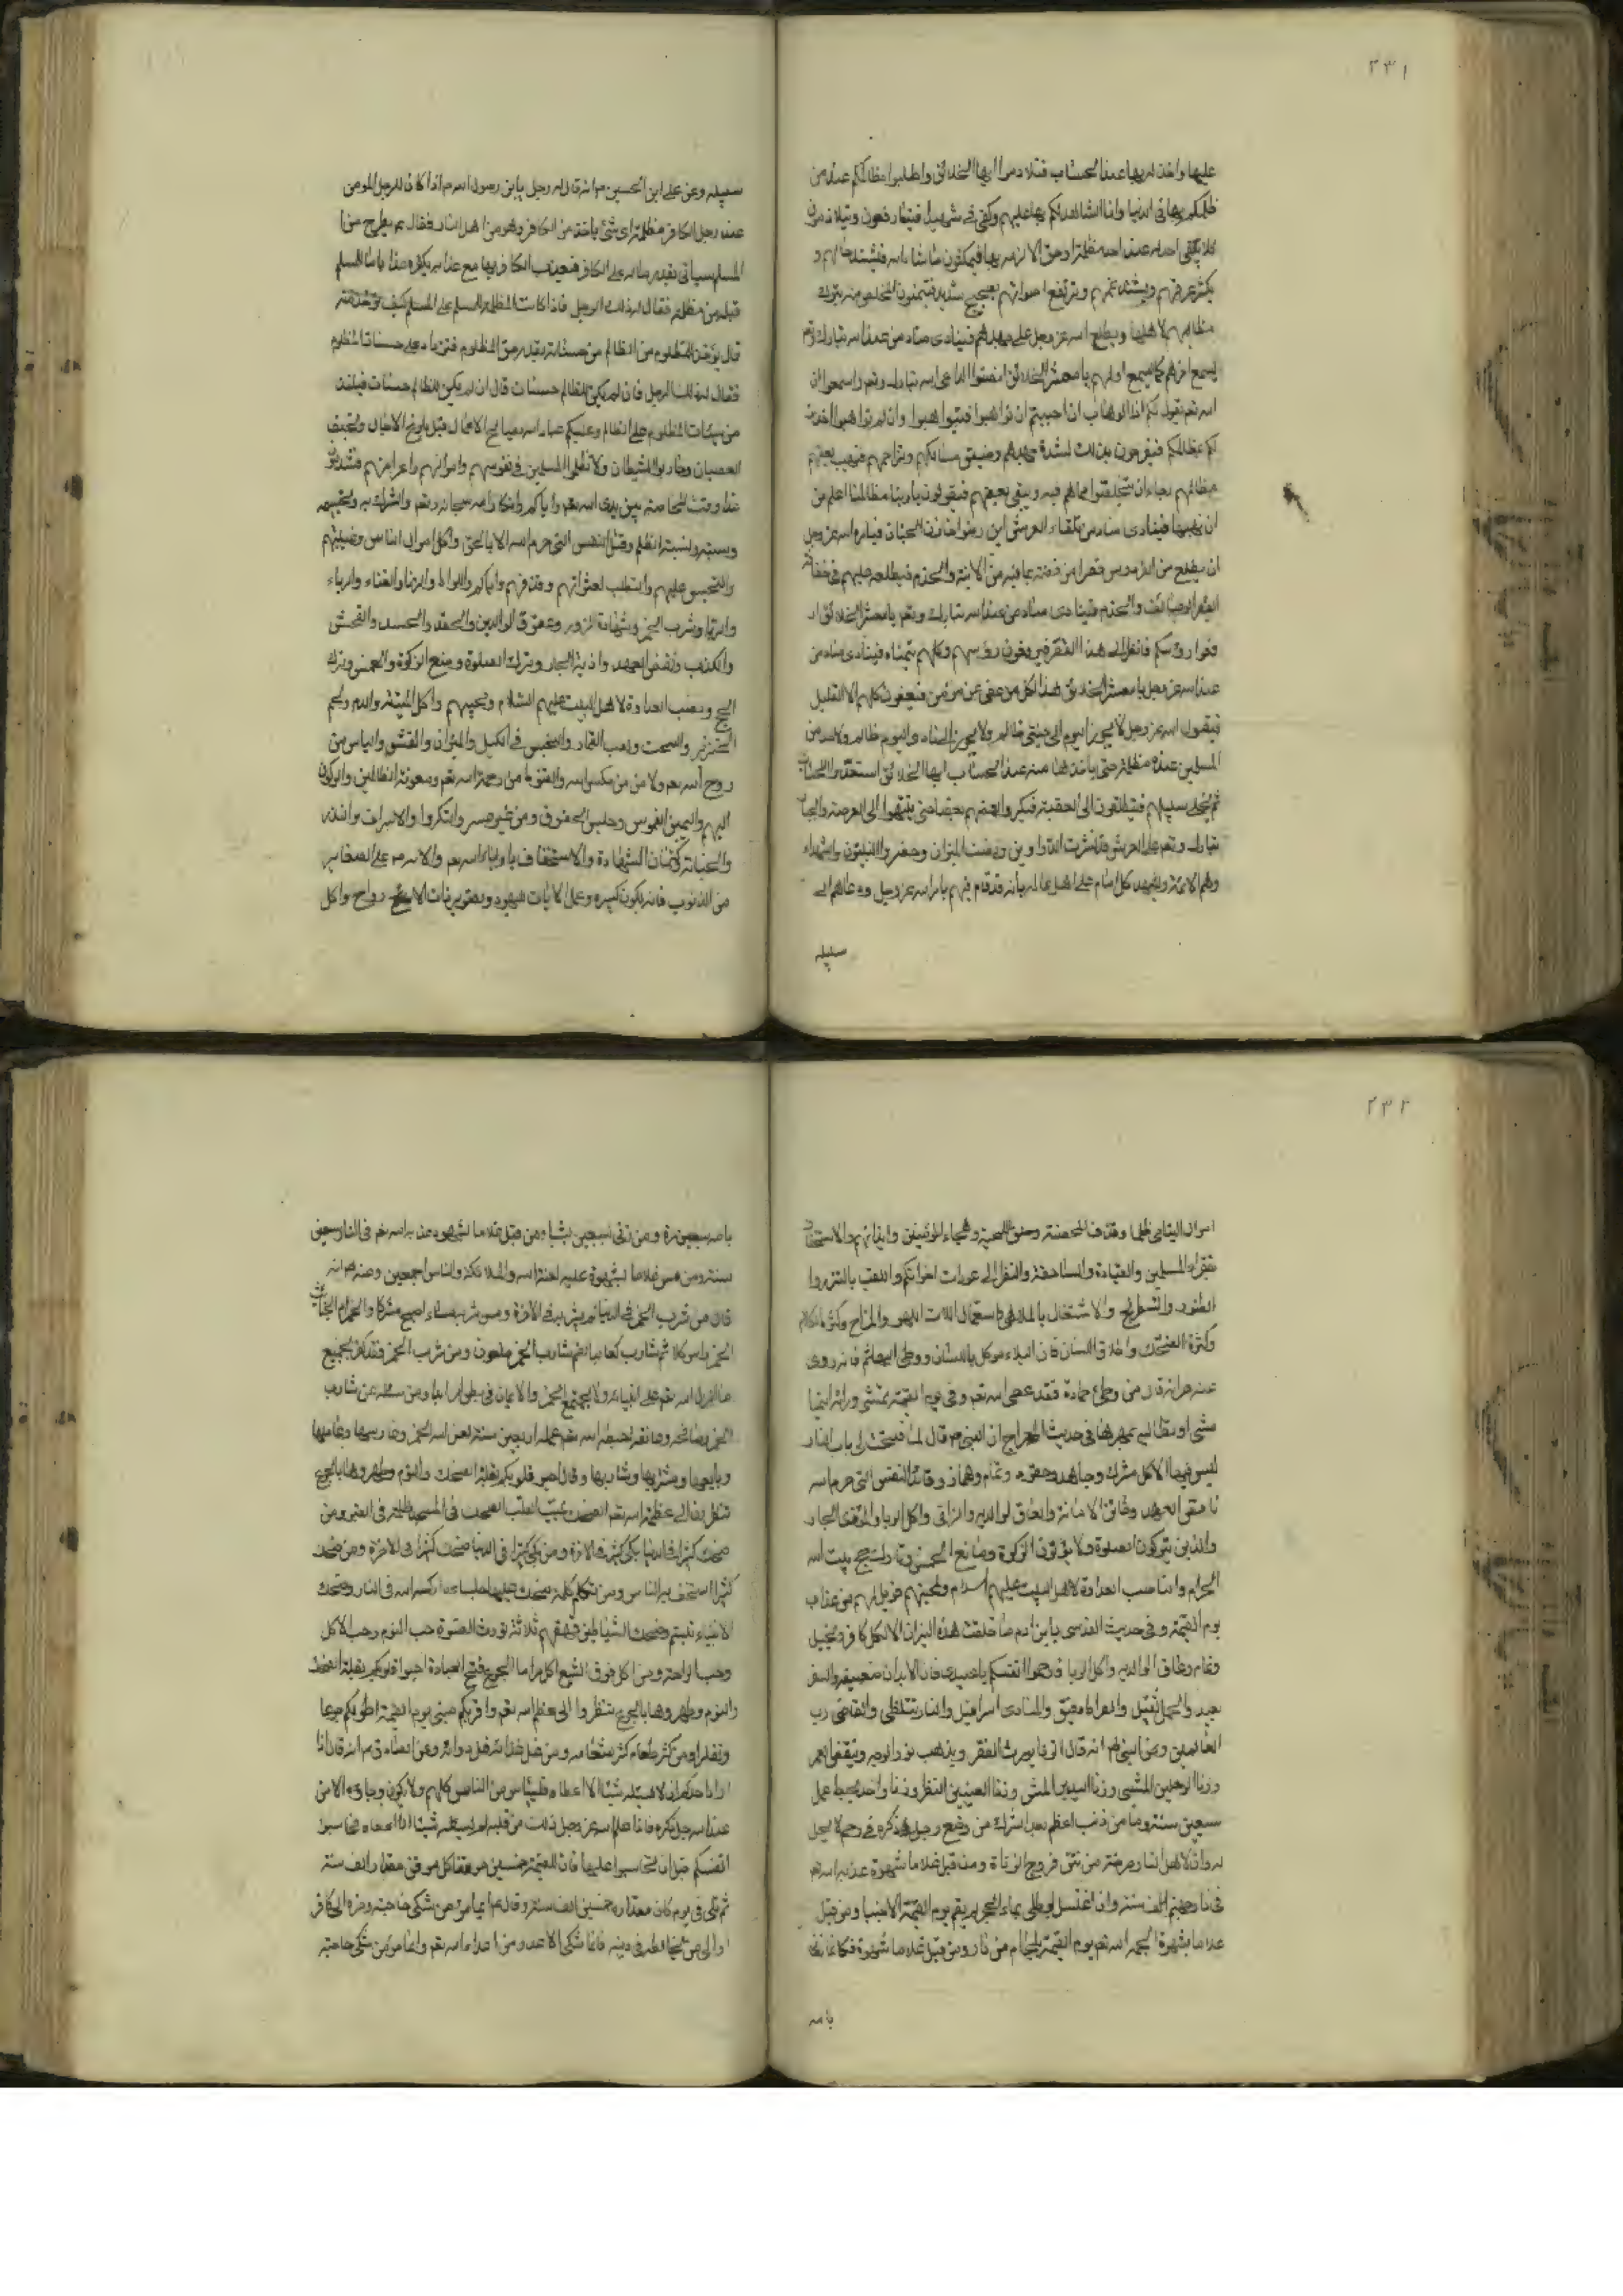 ٢٣١
عليها واخذ لربها عند الحساب فتلازموا ايها الخلائق واطلبوا مظالمكم عند من
ظلمكم بها في الدنيا وانا الشاهد لكم بها عليهم وكفى في شهيدا فيتعارفون ويتلازمون
فلا يبقى احد له عند احد مظلمة او حق الا لزمه بها فيمكثون ما شاء الله فيشتد حالهم و
يكثر عرقهم ويشتد غمهم وترتفع اصواتهم بضجيج شديد فيتمنون المخلص منه بترك
مظالمهم لاهلها ويطلع الله عز وجل على جهدهم فينادى مناد من عند الله تبارك وتع
يسمع اخرهم كما يسمع اولهم يا معشر الخلائق انصتوا لداعى الله تبارك وتع واسمعوا ان
الله تع يقول لكم انا الوهاب ان احببتم ان تواهبوا فتواهبوا وان لم تواهبوا اخذت
لكم بمظالمكم فيفرحون بذلك لشدة جهدهم وضيق مسالكهم وتزاحمهم فيهب بعضهم
مظالمهم رجاء ان يتخلصوا مما هم فيه ويبقى بعضهم فيقولون يا ربنا مظالمنا اعظم من
ان نهبها فينادى مناد من تلقاء العرش اين رضوان خازن الجنان فيامره الله عز وجل
ان يطلع من الفردوس قصرا من فضة بما فيه من الانية والخدم فيطلعه عليهم في
القصر الوصائف والخدم فينادى مناد من عند الله تبارك وتع يا معشر الخلائق ار
فعوا رؤسكم فانظروا الى هذا القصر فيرفعون رؤسهم وكلهم يتمناه فينادى مناد من
عند الله عز وجل يا معشر الخلائق هذا لكل من عفى عن مؤمن فيعفون كلهم الا القليل
فيقول الله عز وجل لا يجوز اليوم الى جنتى ظالم ولا يجوز الى نارى اليوم ظالم ولاحد من
المسلمين عنده مظلمة حتى ياخذها منه عند الحساب ايها الخلائق استعدوا للحساب
ثم يخلى سبيلهم فينطلقون الى العقبة فيكرد بعضهم بعضا حتى ينتهوا الى العرصة والجبار
تبارك وتع على العرش قد نشرت الدواوين ونصبت الميزان وحضر النبيون والشهداء
وهم الائمة ويشهد كل امام على اهل عالمه بانه قد قام فيهم بامر الله عز وجل ودعاهم الى
سبيله
سبيله وعن على ابن الحسين م انه قال له رجل يابن رسول الله م اذا كان للرجل المؤمن
عند رجل الكافر مظلمة اى شئ ياخذ من الكافر وهو من اهل النار فقال م يطرح من ا
المسلم سيئاتى بقدر ما له على الكافر فيعذب الكافر بها مع عذابه بكفره عذابا ما للمسلم
قبله من مظلمة فقال له ذلك الرجل فاذا كانت المظلمة للمسلم على المسلم كيف تؤخذ منه
قال يؤخذ للمظلوم من الظالم من حسناته بقدر حق المظلوم فتزاد على حسنات المظلوم
فقال له ذلك الرجل فان لم يكن للظالم حسنات قال ان لم يكن للظالم حسنات فيلقى
من سيئات المظلوم على الظالم وعليكم عباد الله بصالح الاعمال قبل بلوغ الاجال وتجنب
العصيان ومحاربة الشيطان ولا تظلموا المسلمين في نفوسهم واموالهم واعراضهم
غدا وقت المخاصمة بين يدى الله تع واياكم وانكار الله سبحانه وتع والشرك به
ونسبته الظلم وقتل النفس التى حرم الله الا بالحق واكل اموال الناس
والتجسس عليهم والتطلب لعثراتهم وقذفهم واياكم واللواط والزنا والغناء والرياء
والربا وشرب الخمر وشهادة الزور وعقوق الوالدين والحقد والحسد والفحش
والكذب ونقض العهد واذية الجار وترك الصلوة ومنع الزكوة والخمس وترك
الحج ونصب العداوة لاهل البيت عليهم السلام ومحبيهم واكل الميتة والدم ولحم
الخنزير والسحت ولعب القمار والبخس في الكيل والميزان والغش والياس من
روح الله تع والامن من مكر الله والقنوط من رحمة الله تع ومعونة الظالمين والركون
اليهم واليمين الغموس وحبس الحقوق ومن غير عسر والكبر والاسراف والتبذير
والخيانة وكتمان الشهادة والاستخفاف باولياء الله تع والاصرار على الصغاير
من الذنوب فانه يكون كبيره وعمل الايات رواح واكل
٢٣٢
اموال اليتامى ظلما وقذف المحصنة وحلق اللحية وهجاء المؤمنين وايذائهم والاستخفاف
بفقراء المسلمين والقيادة والمساحقة والنظر الى عورات اخوانكم واللعب بالنرد وا
لطنبور والشطرنج والاشتغال بالملاهى واستعمال الات اللهو والمزاح وكثرة الكلام
وكثرة الضحك واطلاق اللسان فان البلاء موكل باللسان ووطى البهائم فانه روى
عنه م انه قال من وطئ حمارة فقد عصى الله تع وفي يوم القيمة تمشى ورائه اينما
مشى او يطالبه بمهرها في حديث المعراج ان النبى م قال لما فتحت لى باب النار
ليس فيها الا كل مشرك وجاحد ونمام وهماز وقاتل النفس التى حرم الله
ناقض العهد وخائن الامانة والعاق لوالديه والزانى واكل الربا والمؤذى الجار
والذين يتركون الصلوة ولا يؤتون الزكوة ومانع الخمس وتارك حج بيت الله
الحرام والناصب العداوة لاهل البيت عليهم السلام ومحبيهم فويل لهم من عذاب
يوم القيمة وفي حديث القدسى يابن ادم ما خلقت هذه النيران الا لكل كافر وبخيل
ونمام وعاق الوالدين واكل الربا فارحموا انفسكم يا عبيدى فان الابدان ضعيفة والسفر
بعيد والحمل ثقيل والصراط دقيق والمنادى اسرافيل والنار تتلظى والقاضى رب
العالمين وعن النبى م انه قال الزنا يورث الفقر ويذهب نور الوجه وينقص العمر
وزنا الرجلين المشى وزنا اليدين المس وزنا العينين النظر وزنا واحد يحبط عمل
سبعين سنة وما من ذنب اعظم بعد الشرك من وضع رجل ذكره في رحم لا يحل
له وان لاهل النار صرخة من نتن فروج الزناة ومن قبل غلاما شهوة عذبه الله تع
في نار جهنم الف سنة وان اغتسل لوطى بماء البحر لم يقم يوم القيمة الا جنبا ومن قبل
غلاما بشهوة الجمه الله تع يوم القيمة بلجام من نار ومن قبل غلاما شهوة فكانما زنا
بامه
بامه سبعين مرة ومن زنى بسبعين بنتا ومن قبل غلاما شهوة عذبه الله تع في النار سبعين
سنة ومن مس غلاما بشهوة عليه لعنة الله والملائكة والناس اجمعين وعنه م انه
قال من شرب الخمر في الدنيا لم يشربه في الاخرة ومن شربه مساء اصبح مشركا والخمر ام الخبائث
الخمر شارب كعابد الصنم شارب الخمر ملعون ومن شرب الخمر فقد كفر بجميع
ما انزل الله تع على انبيائه ولا يجتمع الخمر والايمان في بطن ابدا ومن سئله عن شارب
الخمر او صافحه وعانقه احبط الله تع عمله اربعين سنة لعن الله الخمر وغارسها وعاصرها
وبايعها ومشتريها وشاربها وقال احيوا قلوبكم بقلة الضحك والنوم وطهروها بالجوع
تنظروا الى عظمة الله تع الضحك يميت القلب الضحك في المسجد ظلمة في القبر ومن
ضحك كثيرا في الدنيا بكى كثيرا في الاخرة ومن بكى كثيرا في الدنيا ضحك كثيرا في الاخرة ومن ضحك
كثيرا استخف به الناس ومن تكلم كلمة يضحك بها جلساءه اكبه الله في النار وضحك
الانبياء تبسم وضحك الشياطين قهقهة ثلاثة تورث القسوة حب النوم وحب الاكل
وحب الراحة ومن اكل فوق الشبع اكل حراما الجوع مفتاح العبادة احيوا قلوبكم بقلة الضحك
والنوم وطهروها بالجوع تنظروا الى عظمة الله تع واقربكم منى يوم القيمة اطولكم جوعا
وتفكرا ومن كثر طعامه كثر سقامه ومن قل غذائه قل دوائه وعن الصادق م انه قال اذا
اراد احدكم ان لا يسئله شيئا الا اعطاه فليياس من الناس كلهم ولا يكون رجاؤه الا من
عند الله جل ذكره فاذا علم الله عز وجل ذلك من قلبه لم يسئله شيئا الا اعطاه فحاسبوا
انفسكم قبل ان تحاسبوا عليها فان للقيمة خمسين موقفا كل موقف مقدار الف سنة
ثم تلى في يوم كان مقداره خمسين الف سنة وقال م ايما مؤمن شكى حاجته وضره الى كافر
او الى من يخالفه في دينه فانما شكى الله عدو من اعداء الله تع وايما مؤمن شكى حاجته